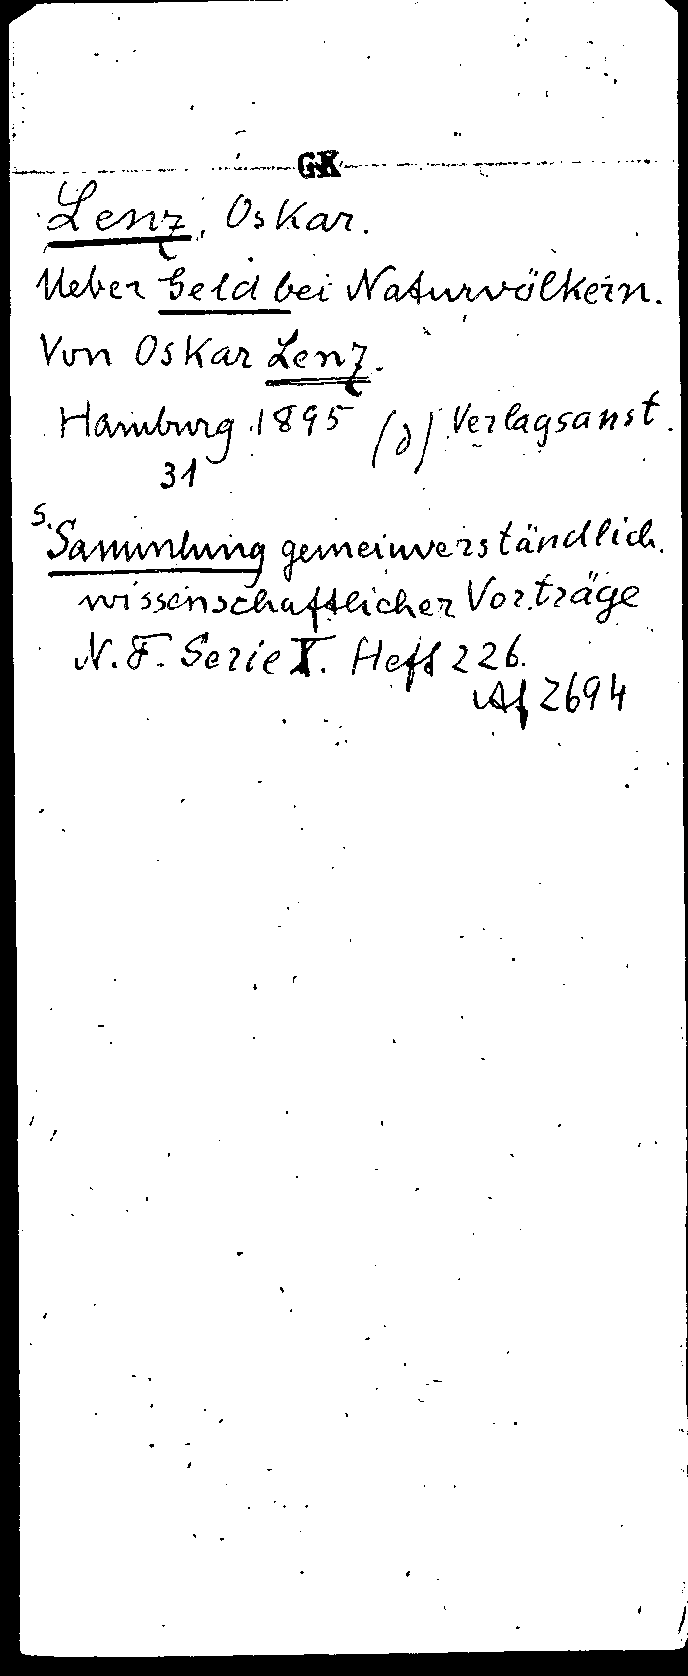 GK
Lenz, Oskar.
Ueber Geld bei Naturvölkern.
Von Oskar Lenz.
Hamburg 1895 (8) Verlagsanst.
31
s. Sammlung gemeinverständlich.
wissenschaftlicher Vorträge
N. F. Serie X. Heft 226.
Af 2694